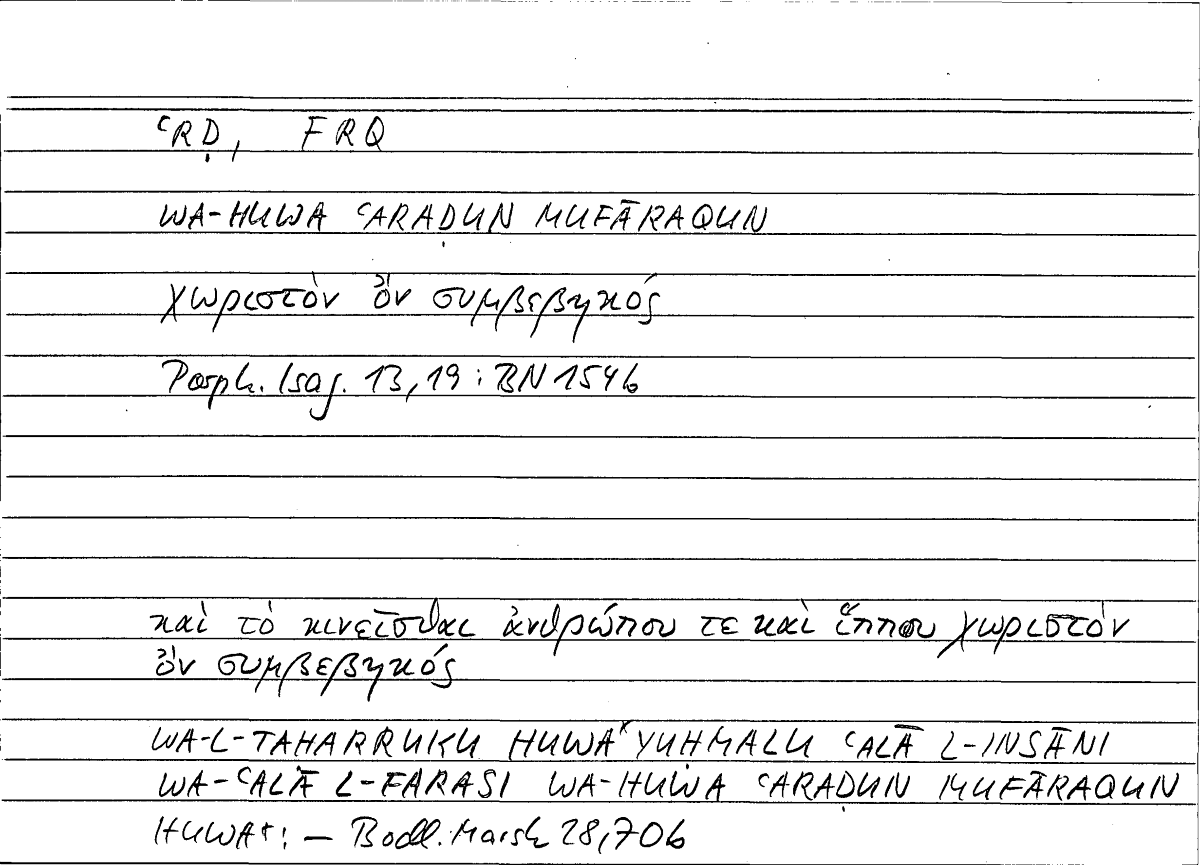 ʿRḌ, FRQ
WA-HUWA ʿARAḌUN MUFĀRAQUN
χωριστὸν ὂν συμβεβηκός
Porph. Isag. 13,19 : BN 154b
καὶ τὸ κινεῖσθαι ἀνθρώπου τε καὶ ἵππου χωριστὸν
ὂν συμβεβηκός
WA-L-TAHARRUKU HUWA⁺ YUḤMALU ʿALĀ L-INSĀNI
WA-ʿALĀ L-FARASI WA-HUWA ʿARAḌUN MUFĀRAQUN
HUWA⁺: – Bodl. Marsh 28,70b